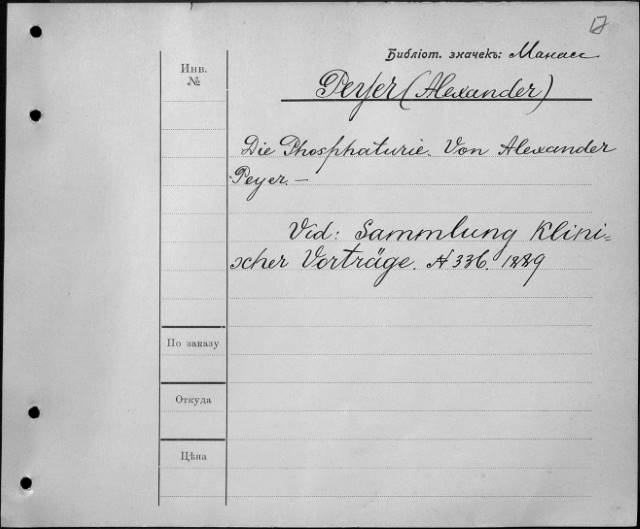 17
Библіот. значекъ: Манасс
Инв.
№
Peyer (Alexander)
Die Phosphaturie. Von Alexander
Peyer. —
Vid: Sammlung Klini=
scher Vorträge. № 336. 1889
По заказу
Откуда
Цѣна